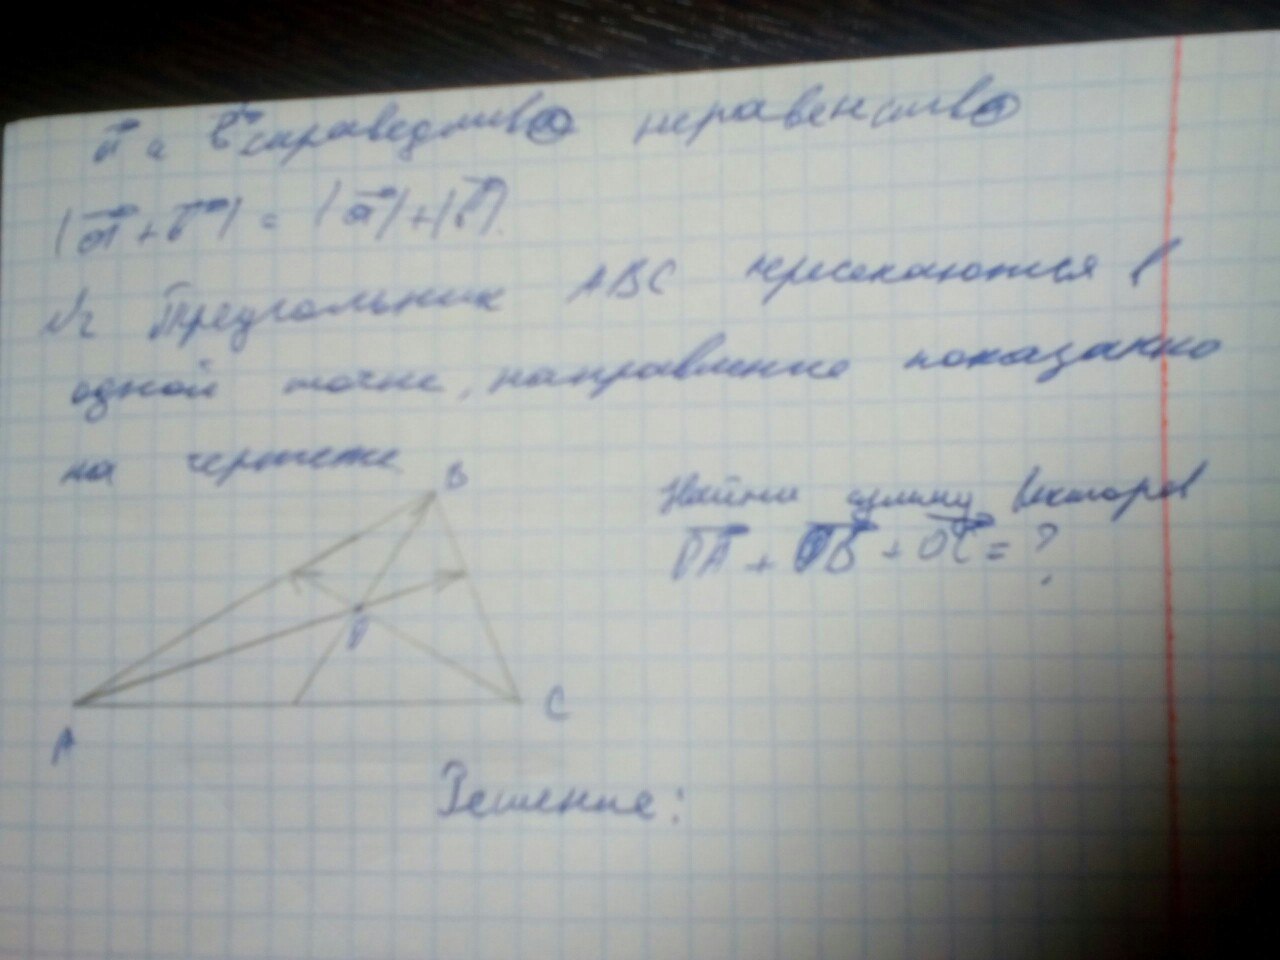 а и в справедлива неравенства
|а + в| = |а| + |в|.
№2 Треугольник АВС пересекаются в
одной точке, направление показанно
на чертеже
В
Найти длину векторов
ОА + ОВ + ОС = ?
О
А
С
Решение: